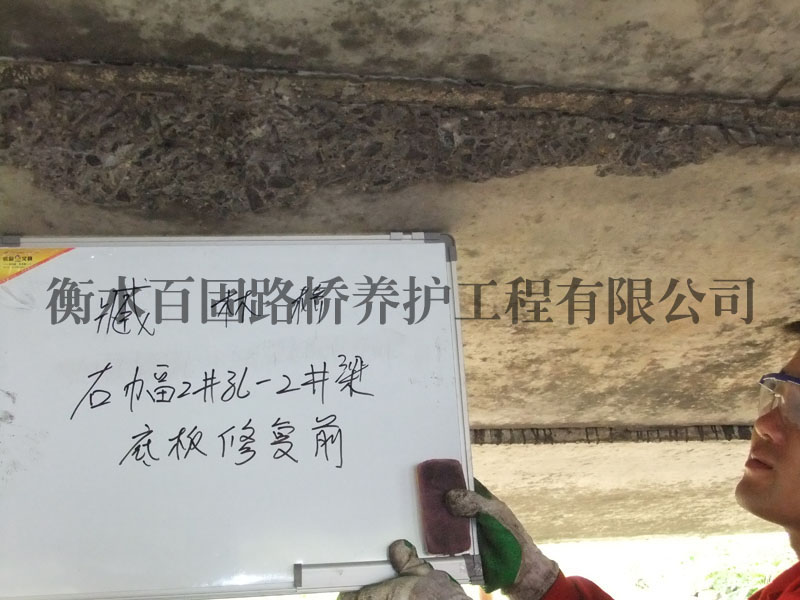 衡水百固路桥养护工程有限公司
臧 林 桥
右幅2#孔-2#梁
底板修复前